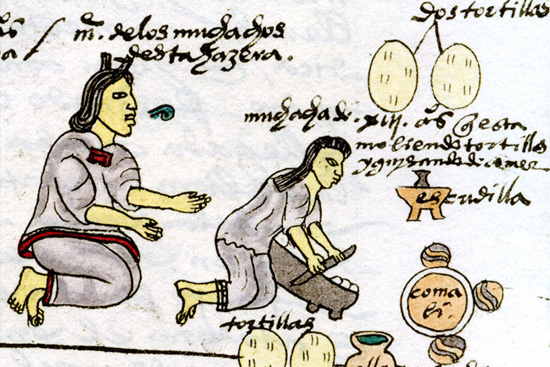 as / m. de los muchachos
desta hazera.
a
dos tortillas
muchacha de. xiii. as q̄ esta
moliendo tortillas
y guisando de comer
escudilla
comali.
tortillas
olla